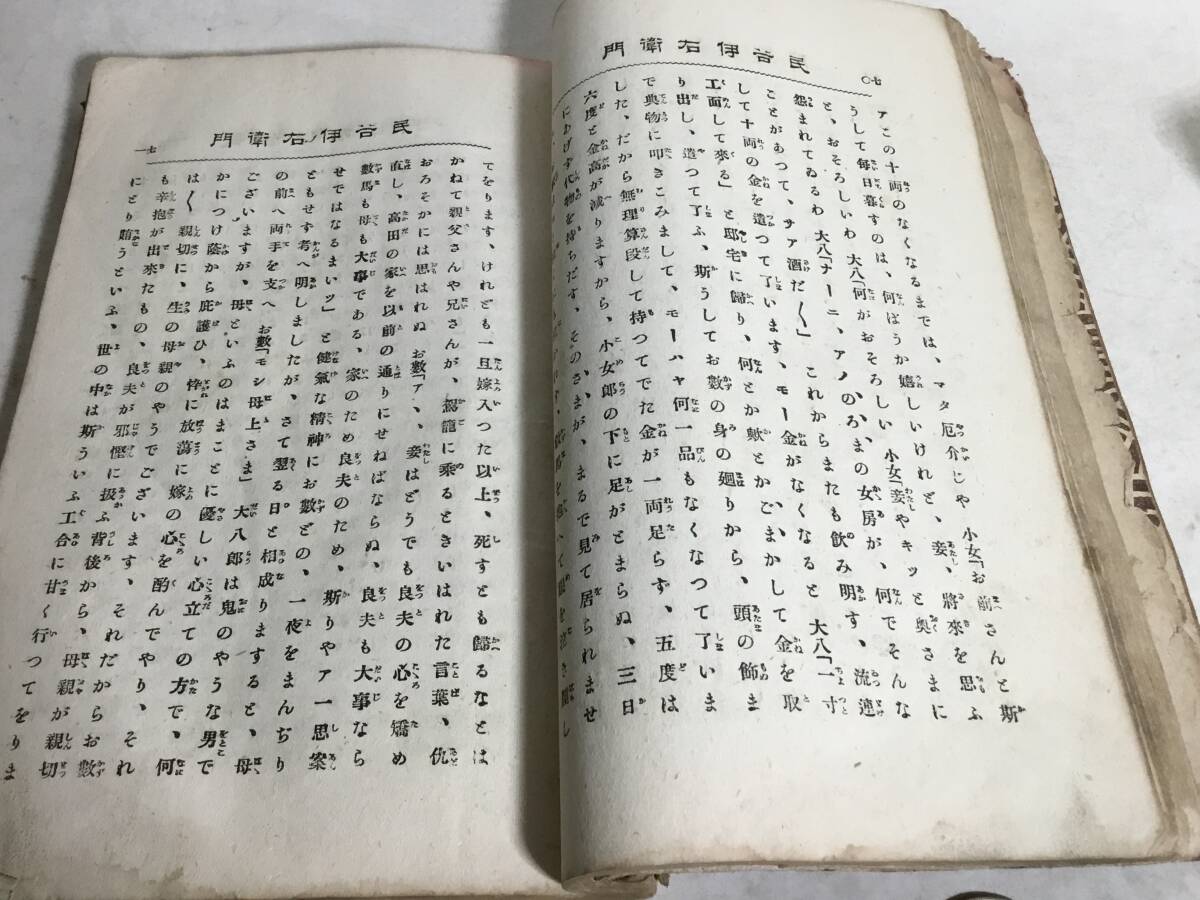 民谷伊右衛門
七〇
アこの十両のなくなるまでは、マタ厄介じや 小女「お前さんと斯
うして毎日暮すのは、何ばうか嬉しいけれど、妾、將來を思ふ
と、おそろしいわ 大八「何がおそろしい 小女「妾やキッと奥さまに
怨まれてゐるわ 大八「ナーニ、アノのろまの女房が、何でそんな
ことがあつて、サア酒だ〱」 これからまたも飲み明す、流連
して十両の金を遣つて了います、モー金がなくなると 大八「一寸
工面して來る」 と邸宅に歸り、何とか欺とかごまかして金を取
り出し、遣つて了ふ、斯うしてお數の身の廻りから、頭の飾ま
で典物に叩きこみまして、モーハヤ何一品もなくなつて了いま
した、だから無理算段して持つてでた金が一両足らず、五度は
六度と金高が減りますから、小女郎の下に足がとまらぬ、三日
にあげず代物を持ちだす、そのさまが、まるで見て居られませ
民谷伊右衛門
七一
てをります、けれども一旦嫁入つた以上、死すとも歸るなとは
かねて親父さんや兄さんが、駕籠に乘るときいはれた言葉、仇
おろそかには思はれぬ お數「ア、、妾はどうでも良夫の心を矯め
直し、高田の家を以前の通りにせねばならぬ、良夫も大事なら
數馬も母も大事である、家のため良夫のため、斯りやア一思案
せではなるまいッ」 と健氣な精神にお數どの、一夜をまんぢり
ともせず考へ明しましたが、さて翌る日と相成りますると、母
の前へ両手を支へ お數「モシ母上さま」 大八郎は鬼のやうな男で
ございますが、母といふのはまことに優しい心立ての方で、何
かにつけ蔭から庇護ひ、悴に放蕩に嫁の心を酌んでやり、それ
は〱親切に、生の母親のやうでございます、それだからお數
も辛抱が出來たもの、良夫が邪慳に扱ふ背後から、母親が親切
にとり賄うといふ、世の中は斯ういふ工合に甘く行つてをりま